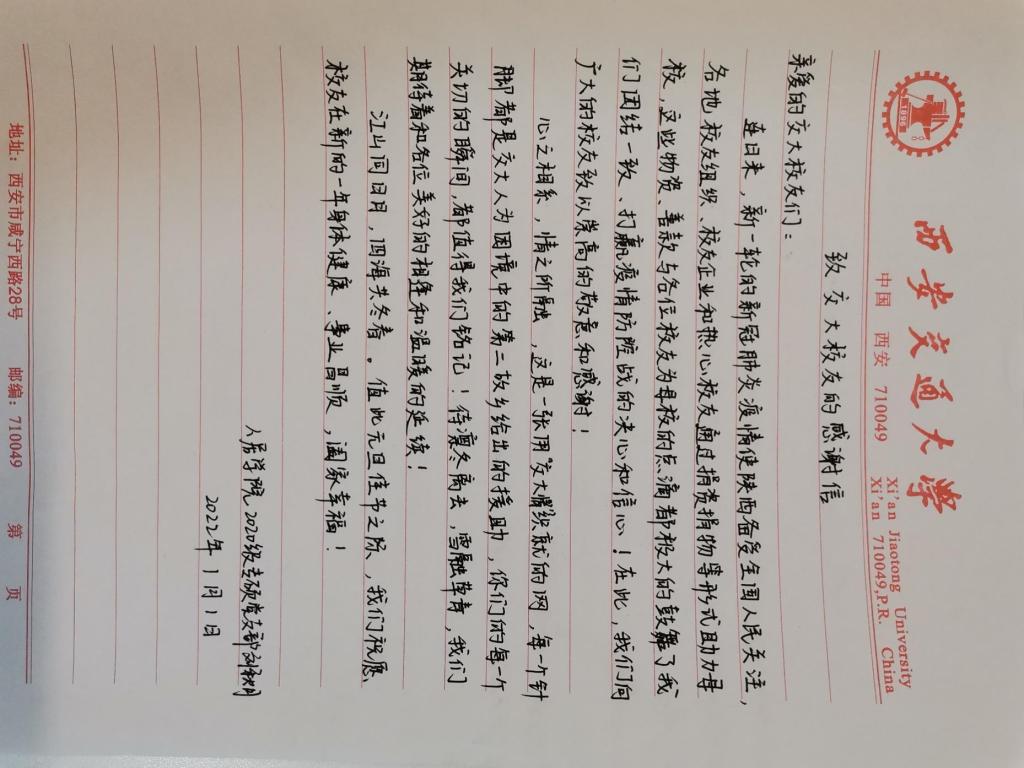 西安交通大学
中国 西安 710049 Xi'an Jiaotong University
Xi'an 710049,P.R. China
1896
致交大校友的感谢信
亲爱的交大校友们：
连日来，新一轮的新冠肺炎疫情使陕西备受全国人民关注，
各地校友组织、校友企业和热心校友通过捐资捐物等形式助力母
校，这些物资、善款与各位校友为母校的点滴都极大的鼓舞了我
们团结一致、打赢疫情防控战的决心和信心！在此，我们向
广大的校友致以崇高的敬意和感谢！
心之相系，情之所融，这是一张用"交大情"织就的网，每一个针
脚都是交大人为困境中的第二故乡给出的援助，你们的每一个
关切的瞬间，都值得我们铭记！待凛冬离去，雪融草青，我们
期待着和各位美好的相逢和温暖的延续！
江山同日月，四海共冬春。值此元旦佳节之际，我们祝愿
校友在新的一年身体健康、事业昌顺，阖家幸福！
人居学院2020级专硕党支部
2022年1月1日
地址：西安市咸宁西路28号 邮编：710049 第 页